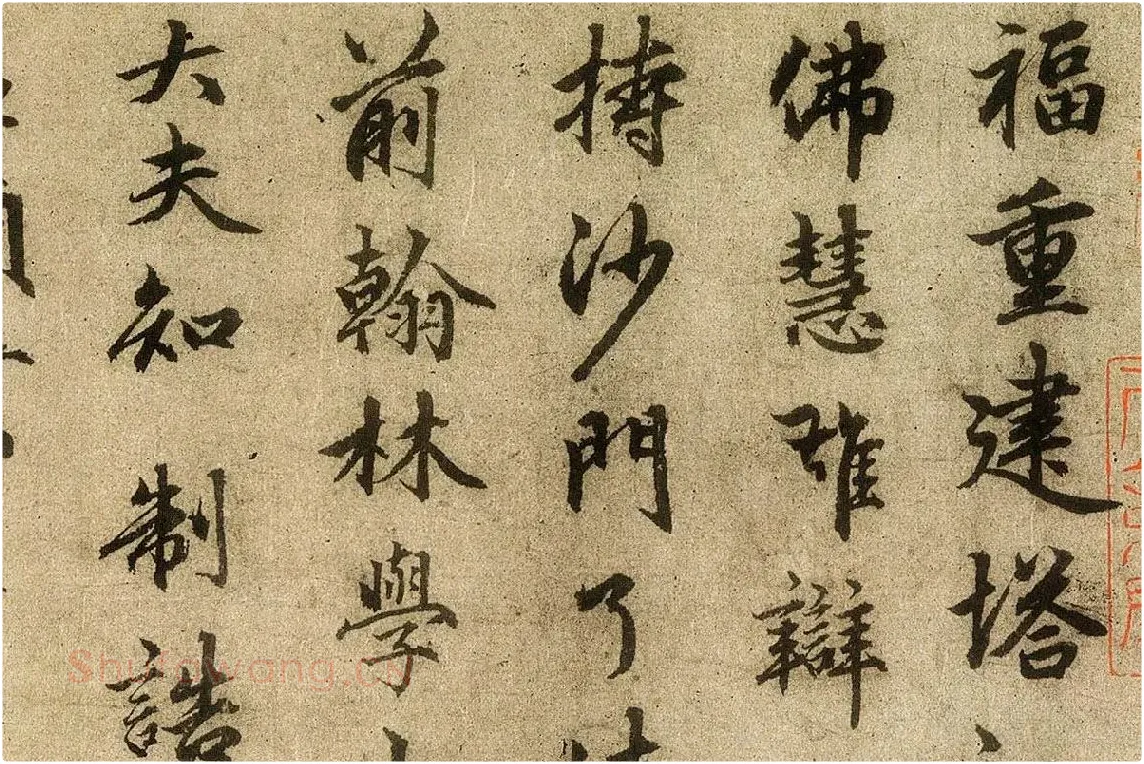 福重建塔
佛慧雄辯
持沙門了
前翰林學
大夫知制誥
Shufawang.cn